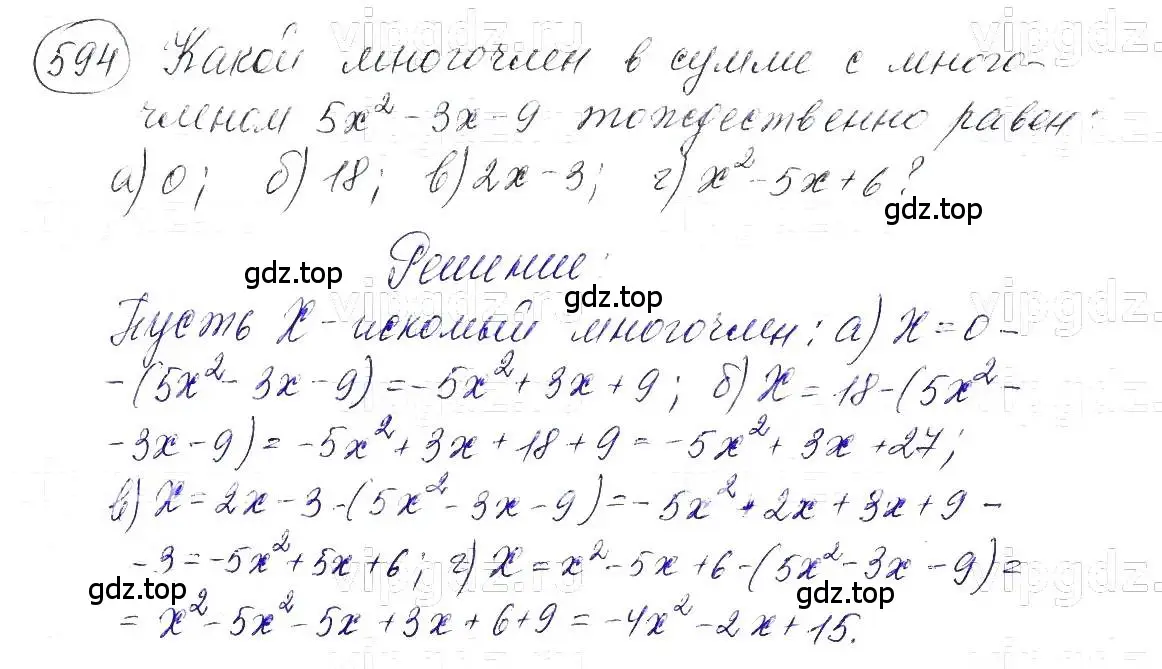 594 Какой многочлен в сумме с много-
членом 5x² - 3x - 9 тождественно равен:
а) 0; б) 18; в) 2x - 3; г) x² - 5x + 6?
gdz.top
Решение:
gdz.top
gdz.top
Пусть X - искомый многочлен: а) X = 0 -
- (5x² - 3x - 9) = -5x² + 3x + 9; б) X = 18 - (5x² -
- 3x - 9) = -5x² + 3x + 18 + 9 = -5x² + 3x + 27;
в) X = 2x - 3 - (5x² - 3x - 9) = -5x² + 2x + 3x + 9 -
- 3 = -5x² + 5x + 6; г) X = x² - 5x + 6 - (5x² - 3x - 9) =
gdz.top
gdz.top
= x² - 5x² - 5x + 3x + 6 + 9 = -4x² - 2x + 15.